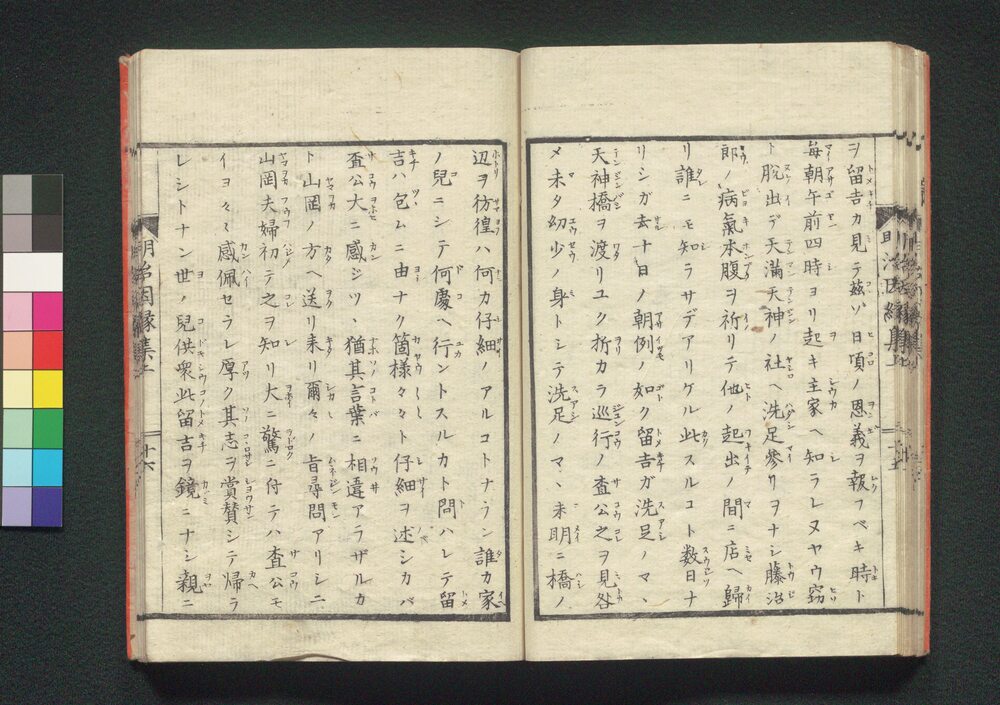 ヲ留吉カ見テ茲ゾ日頃ノ恩義ヲ報フベキ時ト
毎朝午前四時ヨリ起キ主家ヘ知ラレヌヤウ窃
ト脱出デ天満天神ノ社ヘ洗足參リヲナシ藤治
郎ノ病氣本腹ヲ祈リテ他ノ起出ノ間ニ店ヘ歸
リ誰ニモ知ラサデアリケル此スルコト数日ナ
リシガ去十日ノ朝例ノ如ク留吉ガ洗足ノマヽ
天神橋ヲ渡リユク折カラ巡行ノ査公之ヲ見咎
メ未タ幼少ノ身トシテ洗足ノマヽ未明ニ橋ノ
辺ヲ彷徨ハ何カ仔細ノアルコトナラン誰カ家
ノ兒ニシテ何處ヘ行ントスルカト問ハレテ留
吉ハ包ムニ由ナク箇様々々ト仔細ヲ述シカバ
査公大ニ感ジツヽ猶其言葉ニ相違アラザルカ
ト山岡ノ方ヘ送リ来リ爾々ノ旨尋問アリシニ
山岡夫婦初テ之ヲ知リ大ニ驚ニ付テハ査公モ
イヨ々々感佩セラレ厚ク其志ヲ賞賛シテ帰ラ
レシトナン世ノ兒供衆此留吉ヲ鏡ニナシ親ニ
明治因縁集上
十六